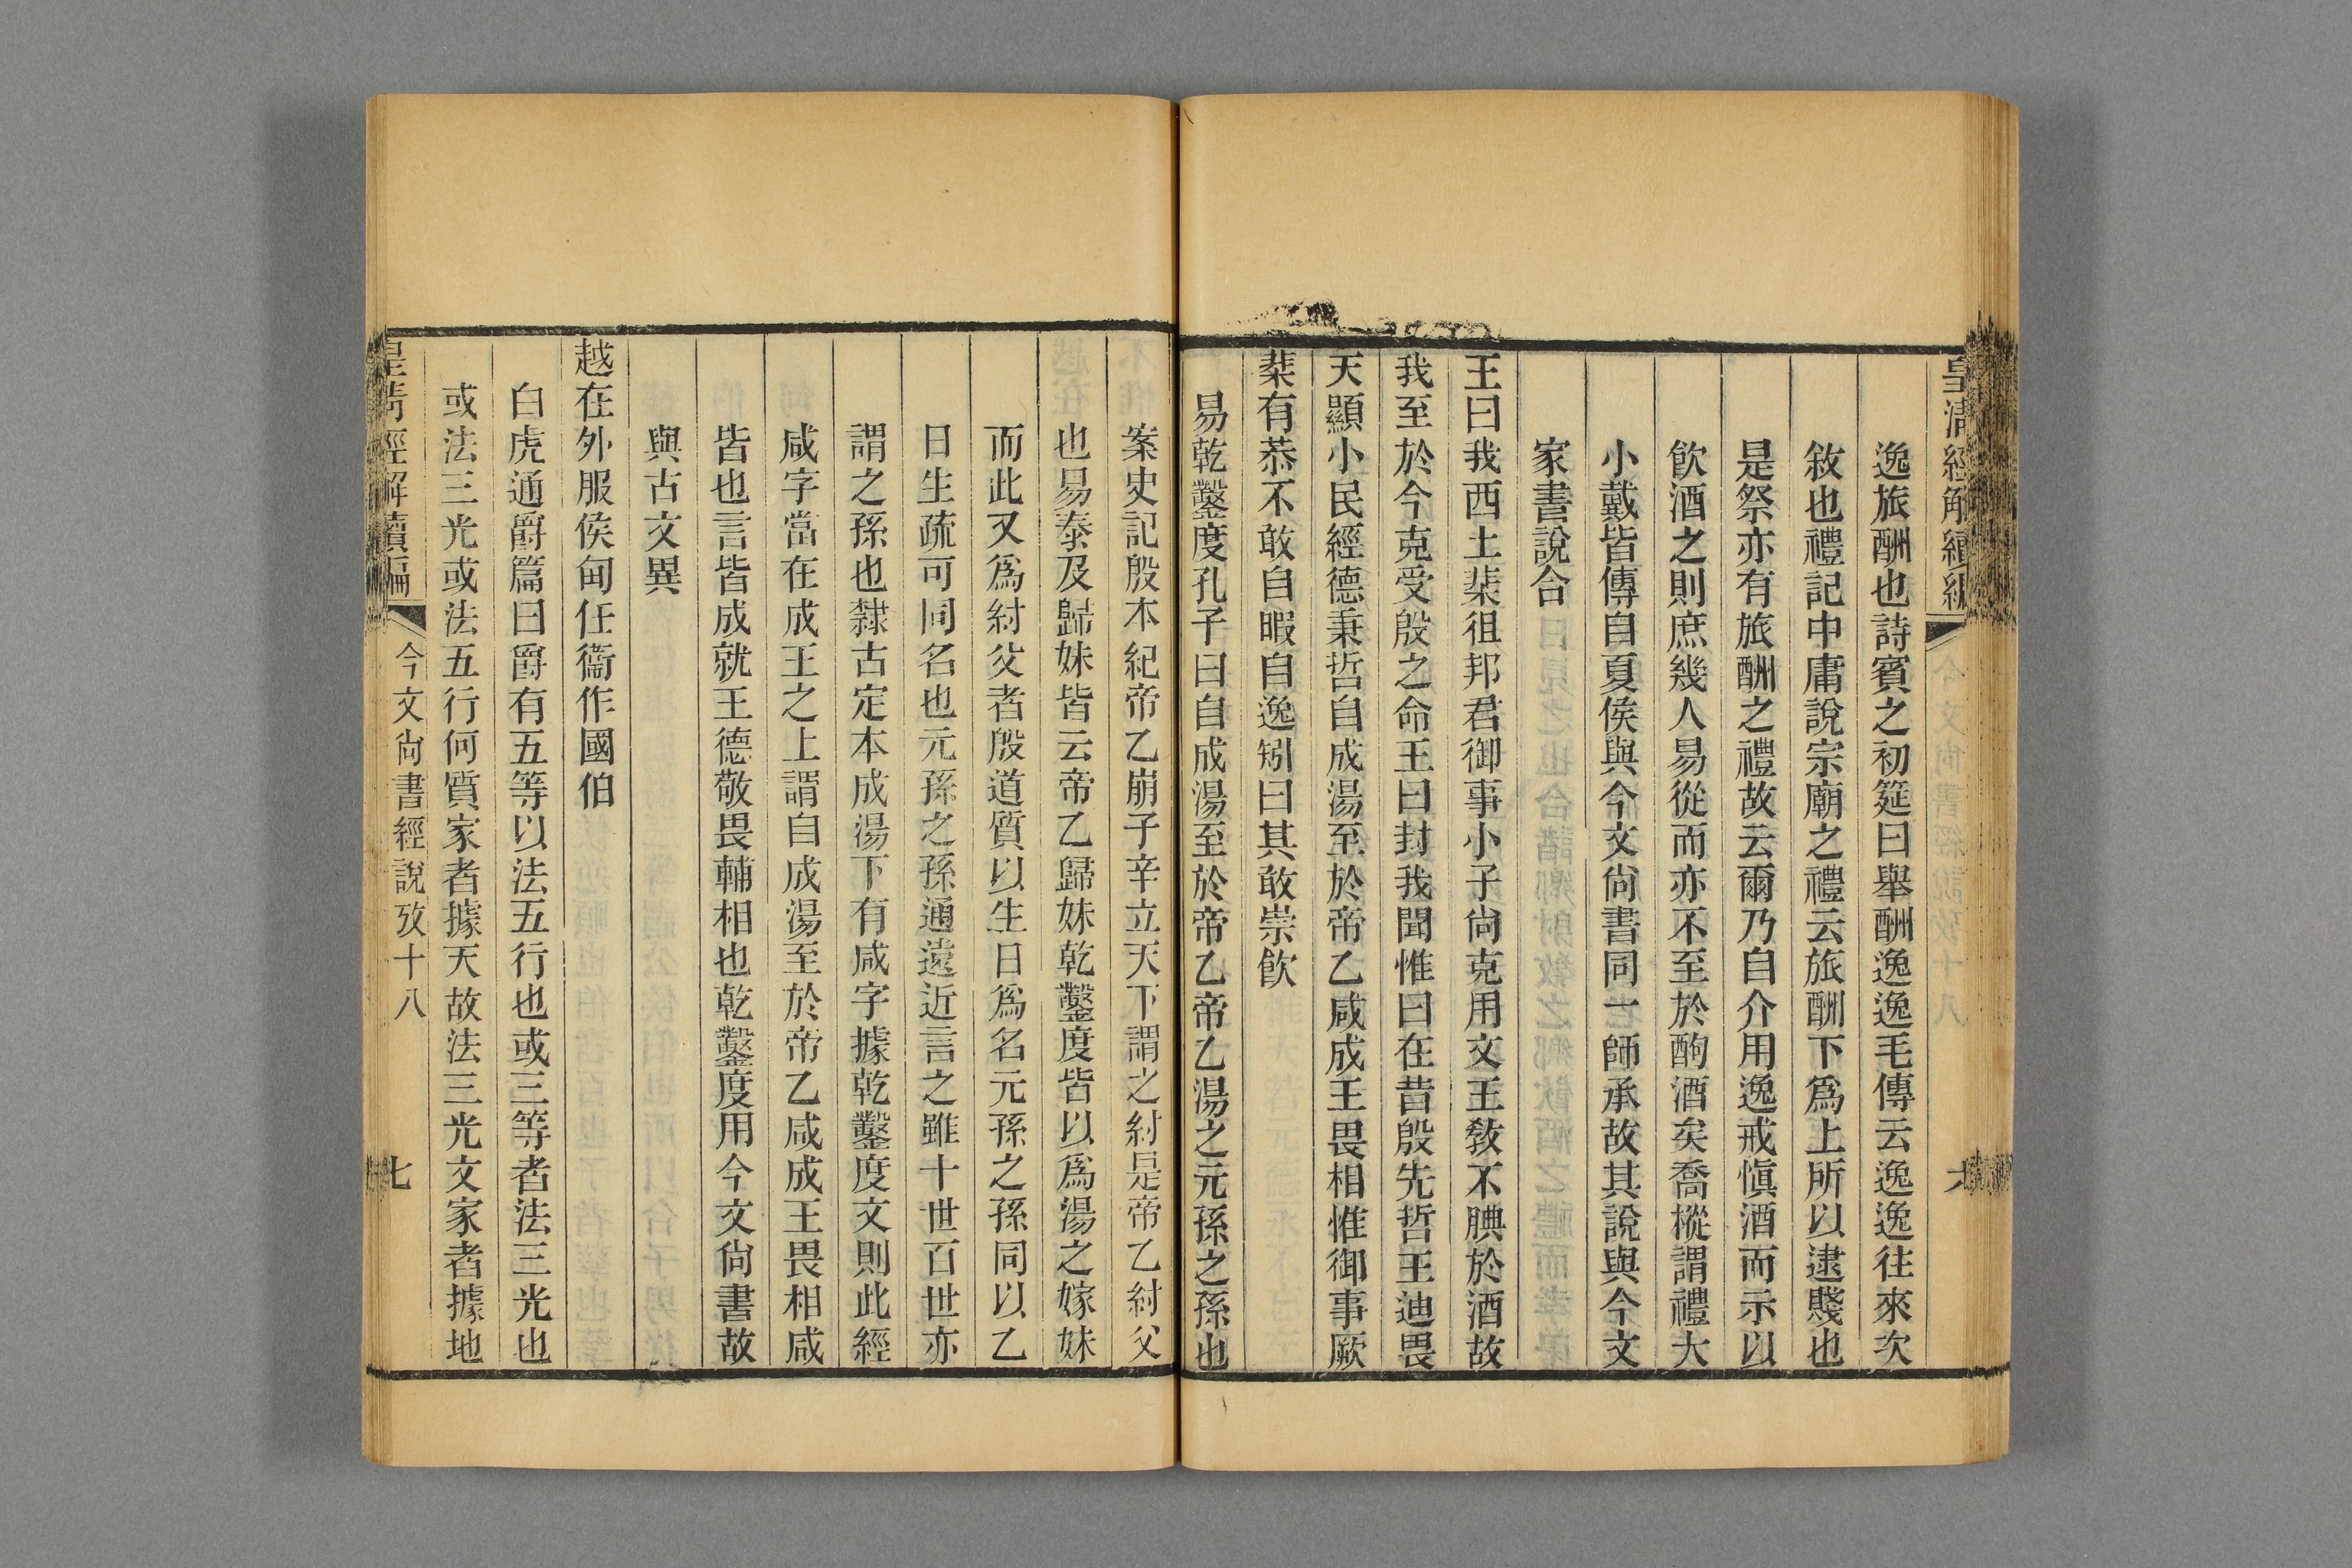 皇清經解續編
六
逸旅酬也詩賓之初筵曰舉酬逸逸毛傳云逸逸往來次
敘也禮記中庸說宗廟之禮云旅酬下爲上所以逮賤也
是祭亦有旅酬之禮故云爾乃自介用逸戒愼酒而示以
飮酒之則庶幾人易從而亦不至於酗酒矣喬樅謂禮大
小戴皆傳自夏侯與今文尙書同一師承故其說與今文
家書說合
王曰我西土棐徂邦君御事小子尙克用文王敎不腆於酒故
我至於今克受殷之命王曰封我聞惟曰在昔殷先哲王迪畏
天顯小民經德秉哲自成湯至於帝乙咸成王畏相惟御事厥
棐有恭不敢自暇自逸矧曰其敢崇飮
易乾鑿度孔子曰自成湯至於帝乙帝乙湯之元孫之孫也
案史記殷本紀帝乙崩子辛立天下謂之紂是帝乙紂父
也易泰及歸妹皆云帝乙歸妹乾鑿度皆以爲湯之嫁妹
而此又爲紂父者殷道質以生日爲名元孫之孫同以乙
日生疏可同名也元孫之孫通遠近言之雖十世百世亦
謂之孫也隸古定本成湯下有咸字據乾鑿度文則此經
咸字當在成王之上謂自成湯至於帝乙咸成王畏相咸
皆也言皆成就王德敬畏輔相也乾鑿度用今文尙書故
與古文異
越在外服侯甸任衞作國伯
白虎通爵篇曰爵有五等以法五行也或三等者法三光也
或法三光或法五行何質家者據天故法三光文家者據地
皇淸經解續編
今文尙書經說攷十八
七